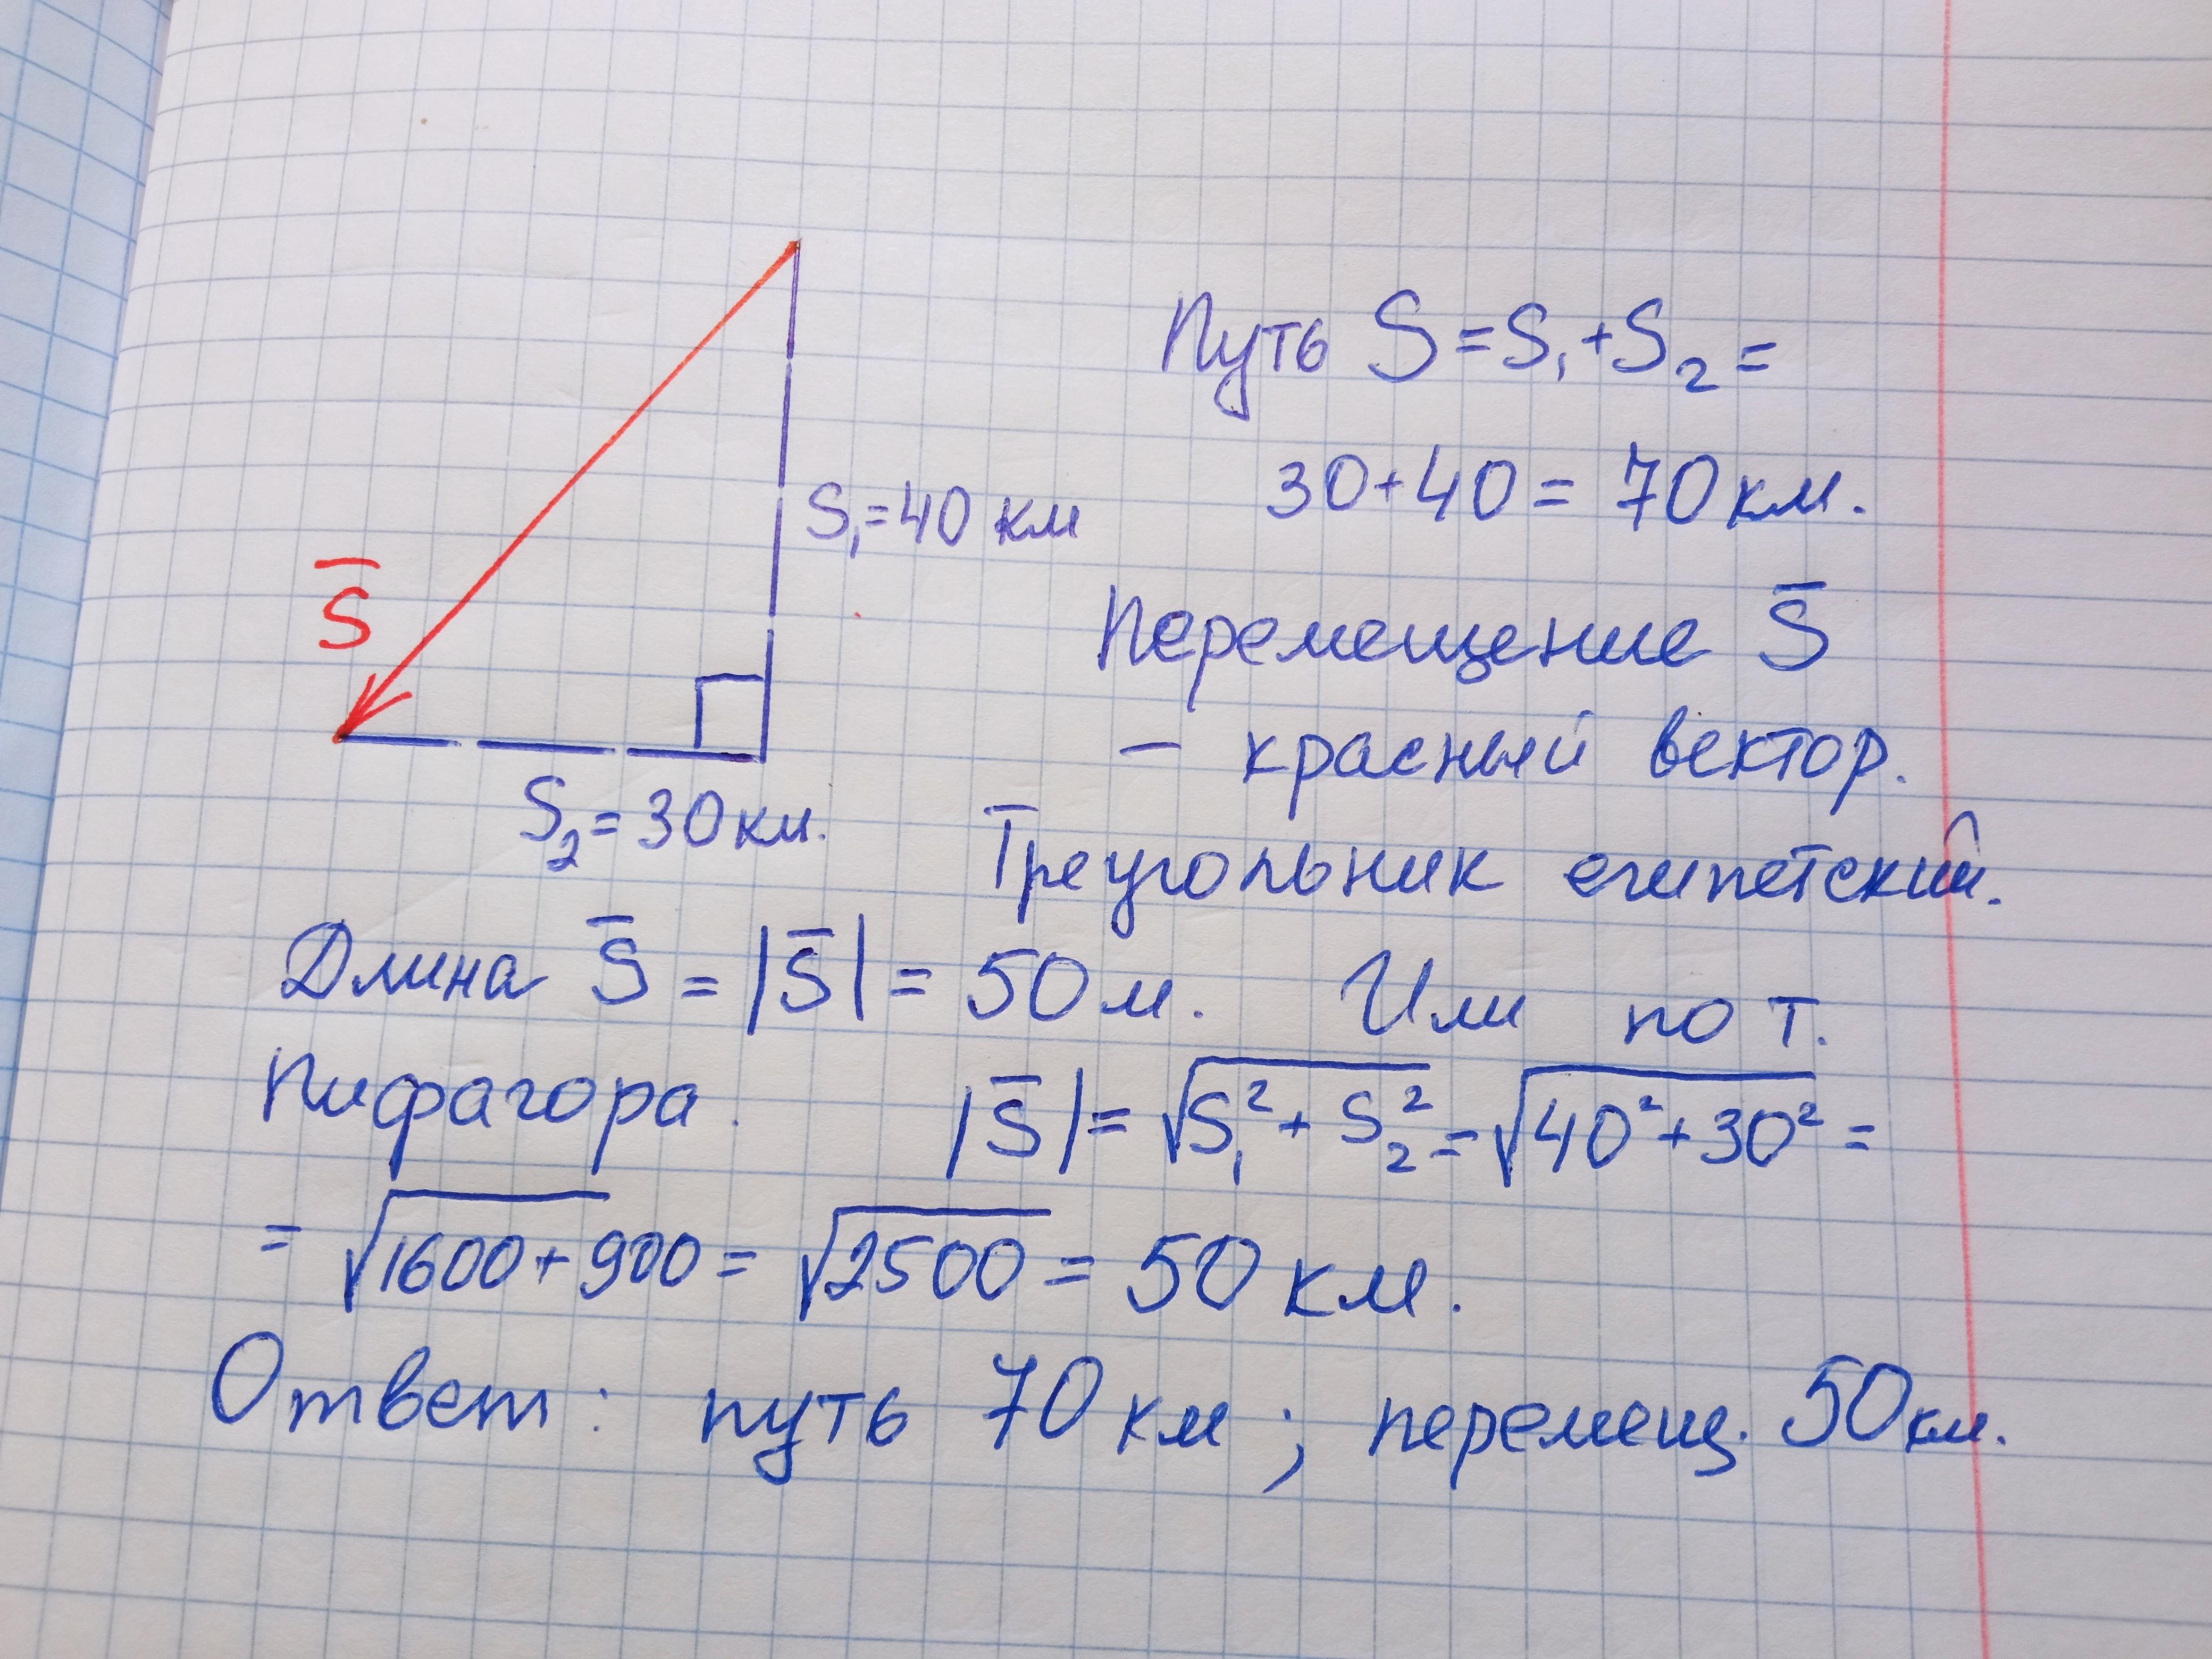 Путь S = S₁ + S₂ =
30 + 40 = 70 км.
S₁ = 40 км
S̅
Перемещение S̅
– красный вектор.
S₂ = 30 км.
Треугольник египетский.
Длина S̅ = |S̅| = 50 м. Или по т.
Пифагора. |S̅| = √(S₁² + S₂²) = √(40² + 30²) =
= √(1600 + 900) = √2500 = 50 км.
Ответ: путь 70 км; перемещ. 50 км.